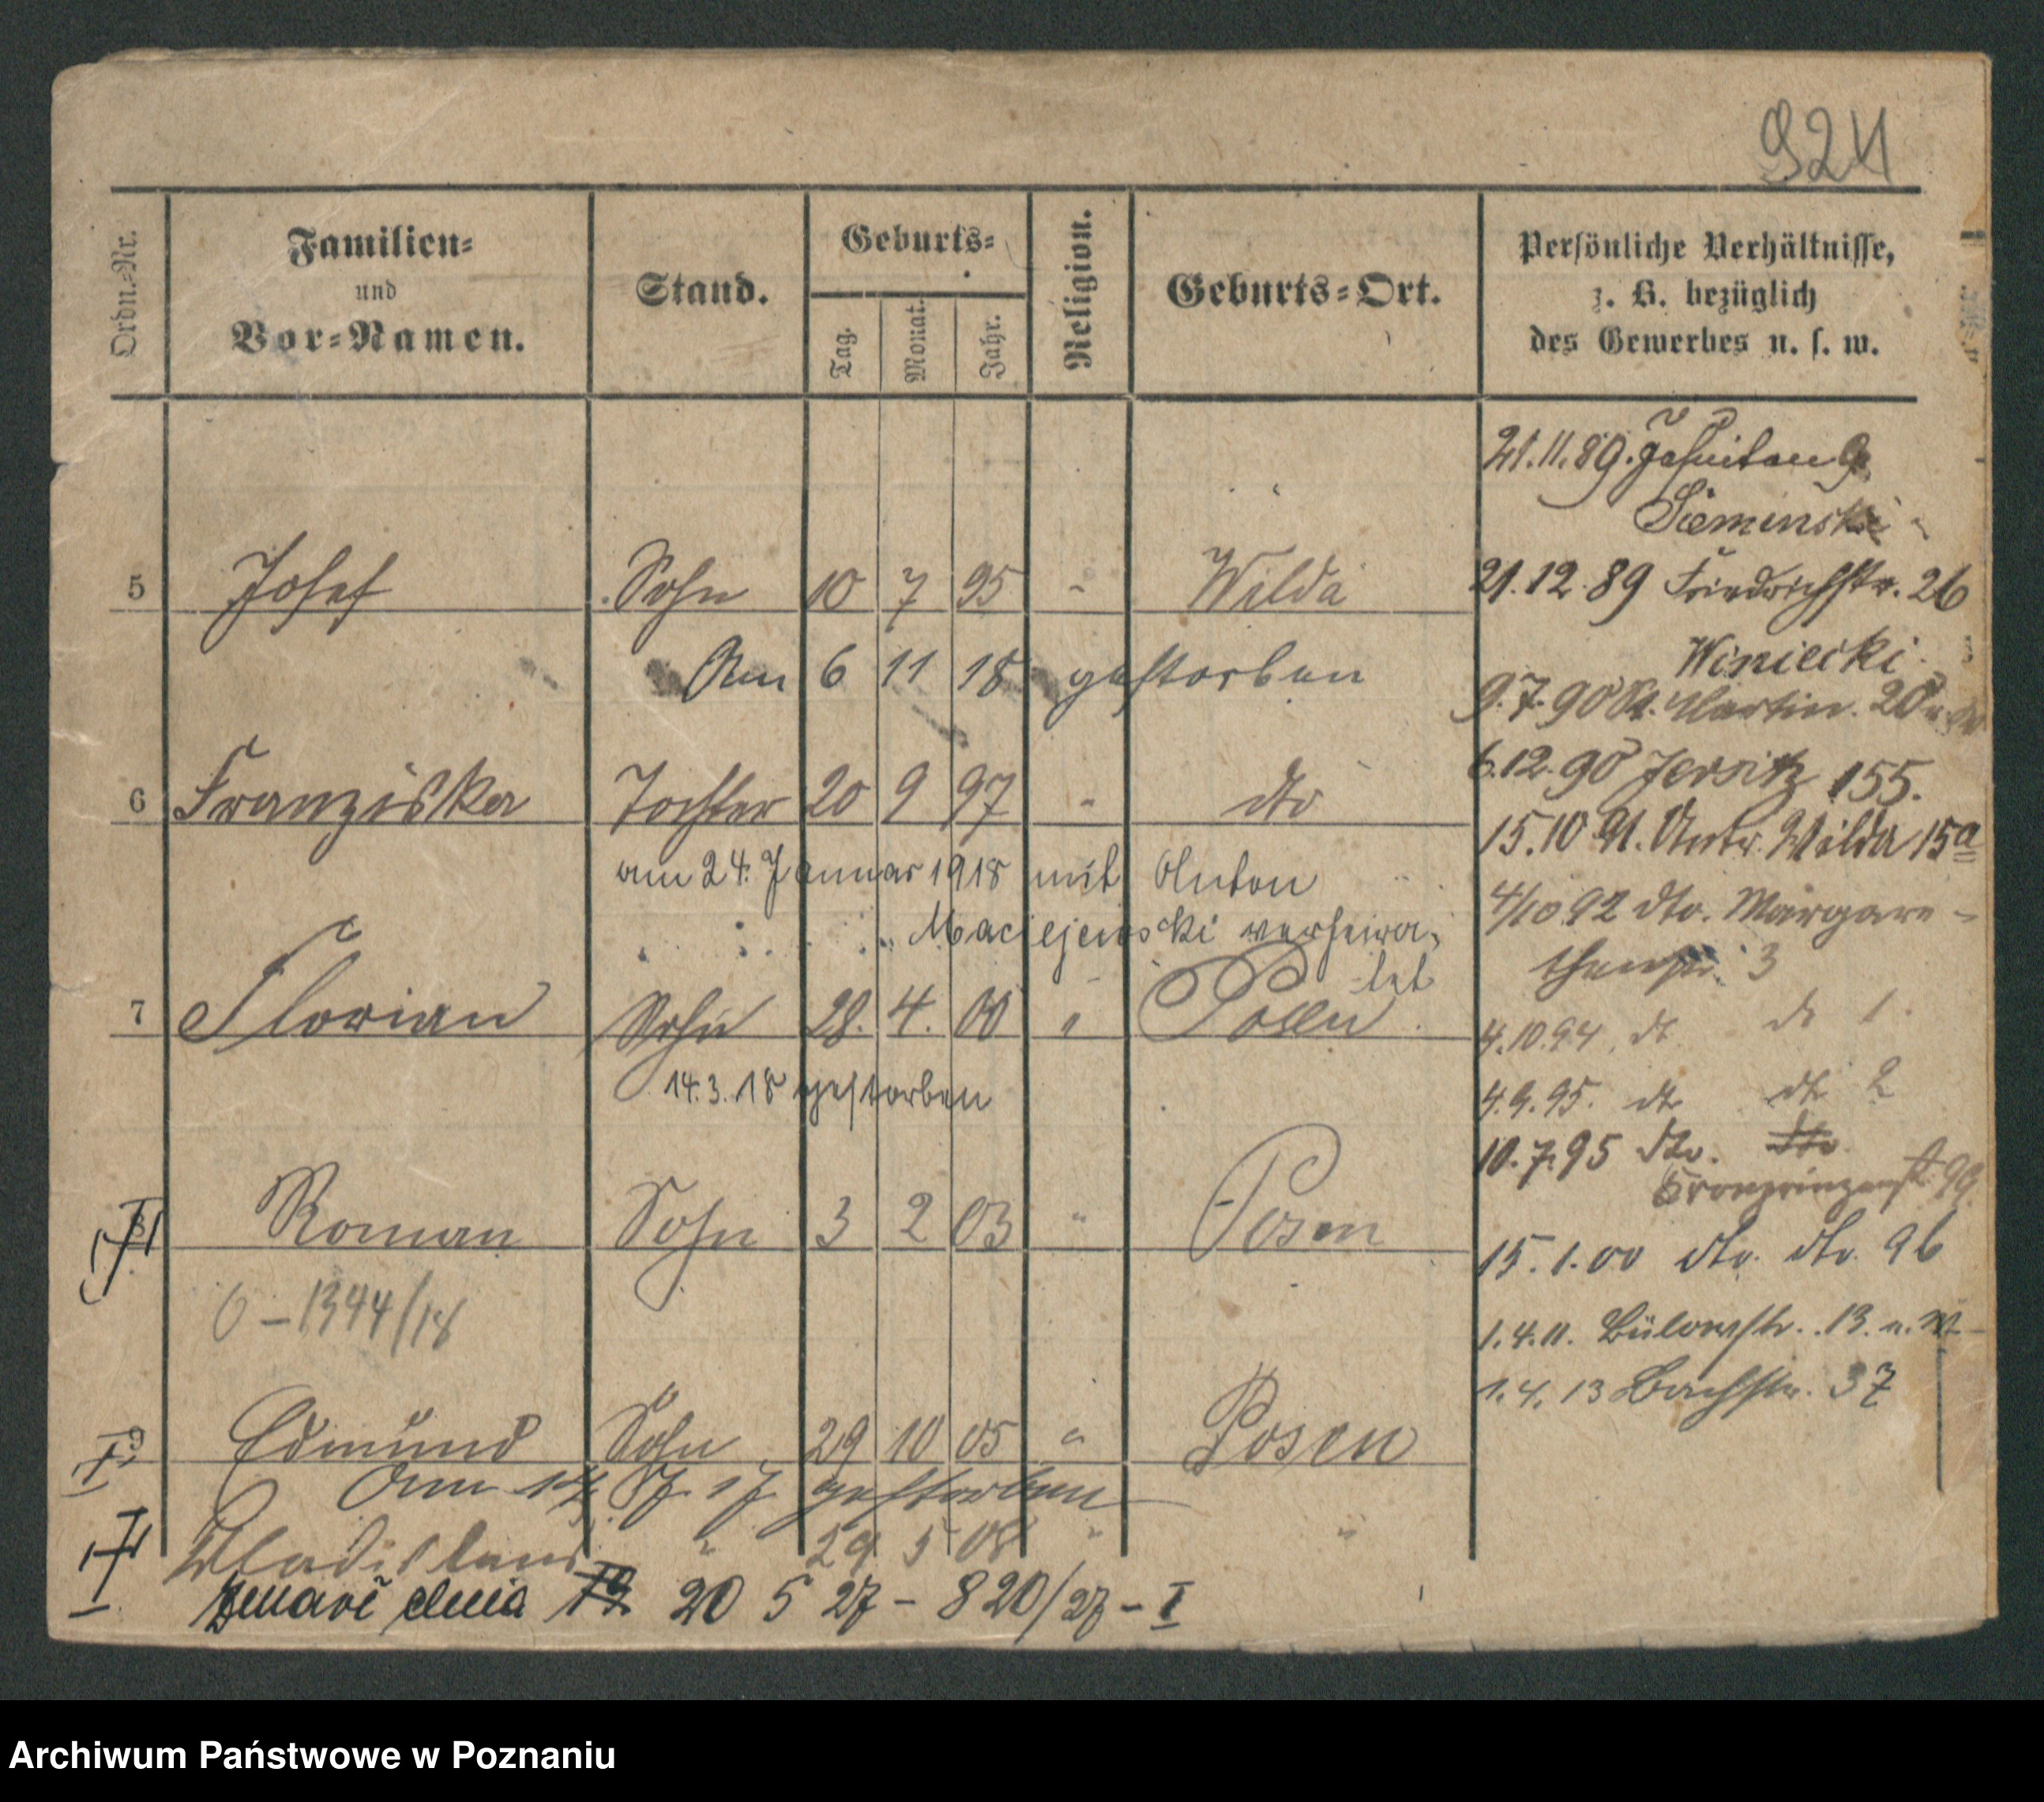 924
Ordn.-Nr.
Familien-
und
Vor-Namen.
Stand.
Geburts-
Tag.
Monat.
Jahr.
Religion.
Geburts-Ort.
Persönliche Verhältnisse,
z. B. bezüglich
des Gewerbes u. s. w.
21.11.89. Jesuitan 9
Sieminski
5 Josef Sohn 10 7 95 " Wilda
21.12.89 Friedrichstr. 26
Winiecki
Am 6 11 18 gestorben
9.7.90 St. Martin. 20
6.12.90 Jersitz 155.
6 Franziska Tochter 20 9 97 " dto
15.10 91. Untr. Wilda 15a
am 24. Januar 1918 mit Anton
Maciejewski verheira-
tet
4/10 92 dto. Margare-
thenstr. 3
7 Florian Sohn 28. 4. 00 " Posen.
4.10.94. dt dt 1.
14.3.18 gestorben
4.9.95. dt dt 2
10.7.95 dto. dto
Cronprinzenst 99
8 Roman Sohn 3 2 03 " Posen
15.1.00 dto. dto. 96
0-1344/18
1.4.11. Bülowstr. 13.
1.4.13 Bachstr. 37
9 Edmund Sohn 29 10 05 " Posen
I
gestorben
Wladislaus " 29 5 08 " "
I
Zmarł dnia 19 20 5 27 - 820/27 - I
Archiwum Państwowe w Poznaniu